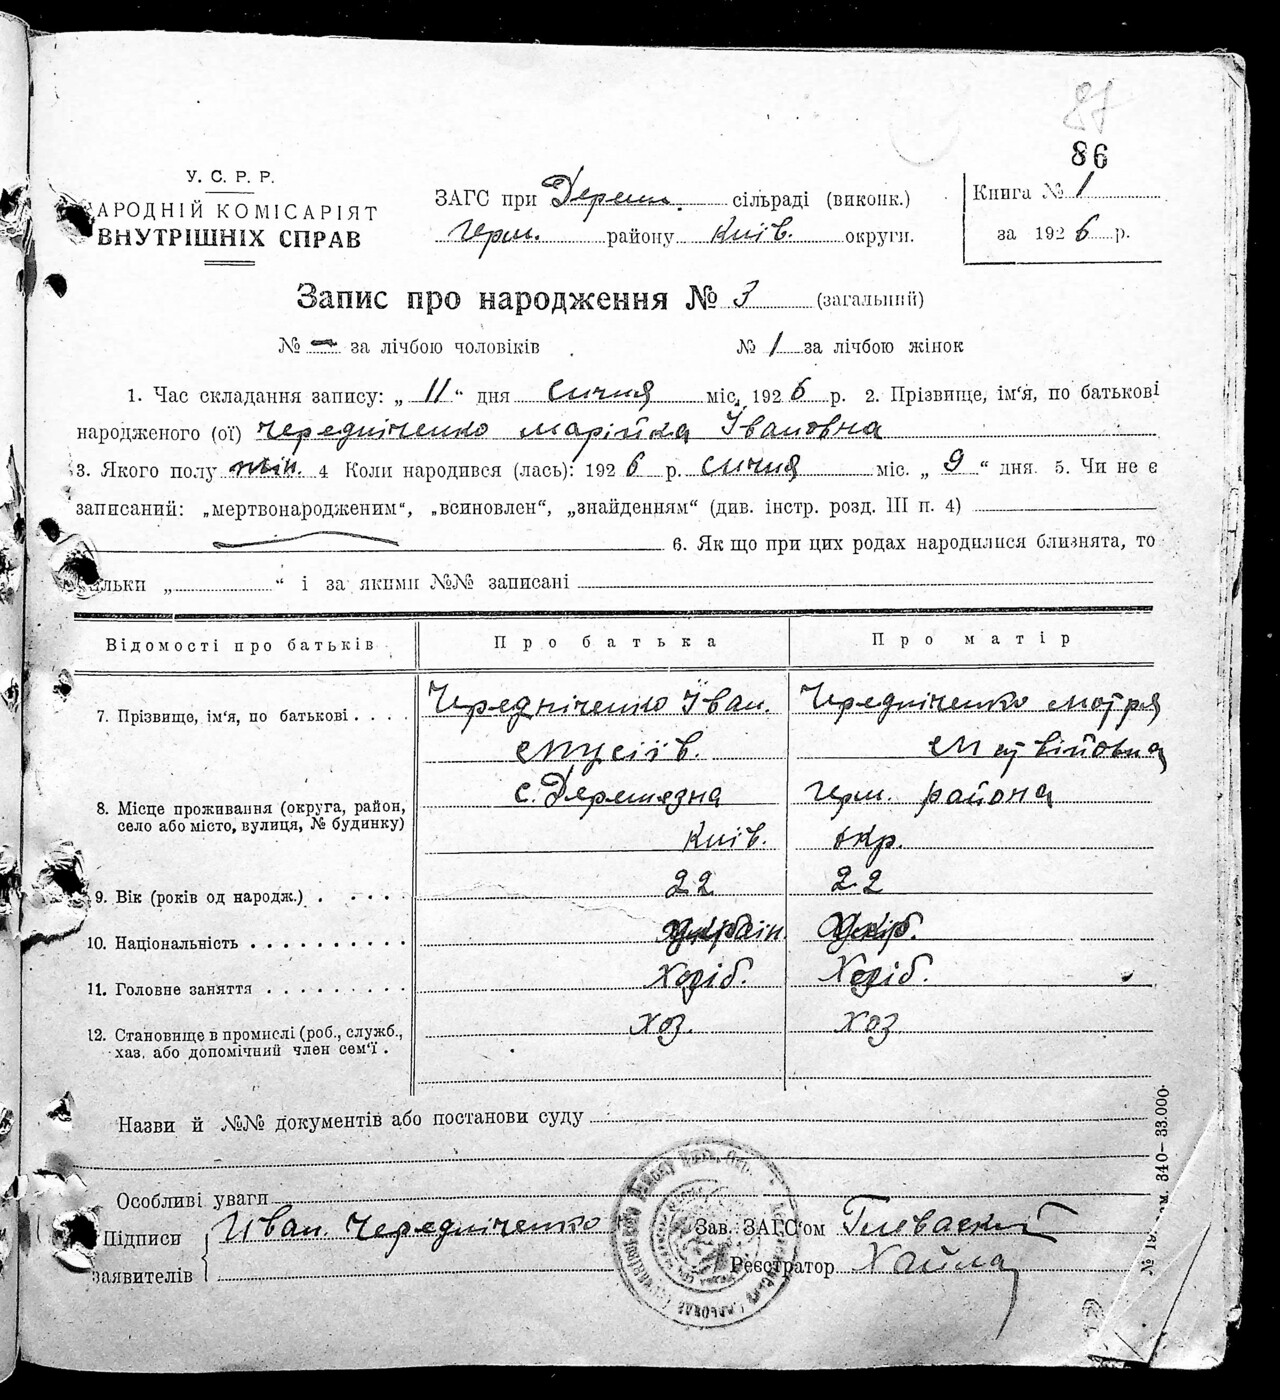 87
86
У. С. Р. Р.
АРОДНІЙ КОМІСАРІЯТ
ВНУТРІШНІХ СПРАВ
ЗАГС при Дерем. сільраді (виконк.)
Герм. району Київ. округи.
Книга № 1
за 1926 р.
Запис про народження № 3 (загальний)
№ — за лічбою чоловіків № 1 за лічбою жінок
1. Час складання запису: „ 11 “ дня січня міс. 1926 р. 2. Прізвище, ім‘я, по батькові
народженого (ої) Чередніченко Марійка Івановна
3. Якого полу жін. 4 Коли народився (лась): 1926 р. січня міс. „ 9 “ дня. 5. Чи не є
записаний: „мертвонародженим“, „всиновлен“, „знайденням“ (див. інстр. розд. III п. 4)
6. Як що при цих родах народилися близнята, то
ільки „ “ і за якими №№ записані
Відомості про батьків Про батька Про матір
7. Прізвище, ім‘я, по батькові . . . . Чередніченко Іван. Чередніченко Мотря
Мусіїв. Матвійовна
8. Місце проживання (округа, район, с. Деремезна Герм. района
село або місто, вулиця, № будинку) Київ. окр.
9. Вік (років од народж.) . . . . . 22 22
10. Національність . . . . . . . . . . Україн. Укр.
11. Головне заняття . . . . . . . . . Хозіб. Хозіб.
12. Становище в промислі (роб., служб., хоз. хоз
хаз. або допомічний член сем‘ї .
Назви й №№ документів або постанови суду
Особливі уваги
Підписи Иван. Чередніченко Зав. ЗАГС‘ом
заявителів Реєстратор Хайла
340—33.000